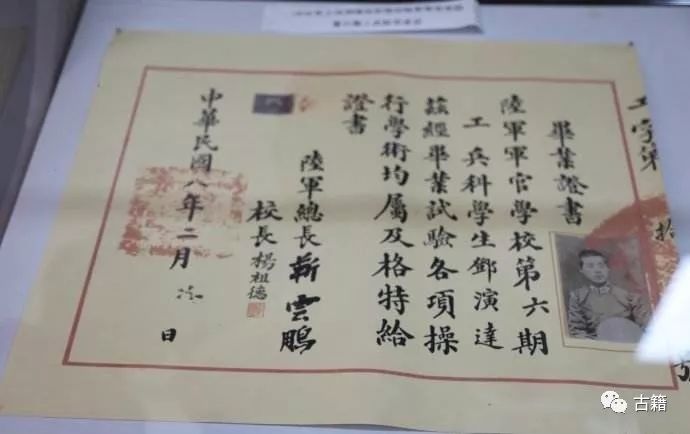 工字第
畢業證書
陸軍軍官學校第六期
工兵科學生鄧演達
茲經畢業試驗各項操
行學術均屬及格特給
證書
陸軍總長靳雲鵬
校長楊祖德
中華民國八年二月 日
號
古籍